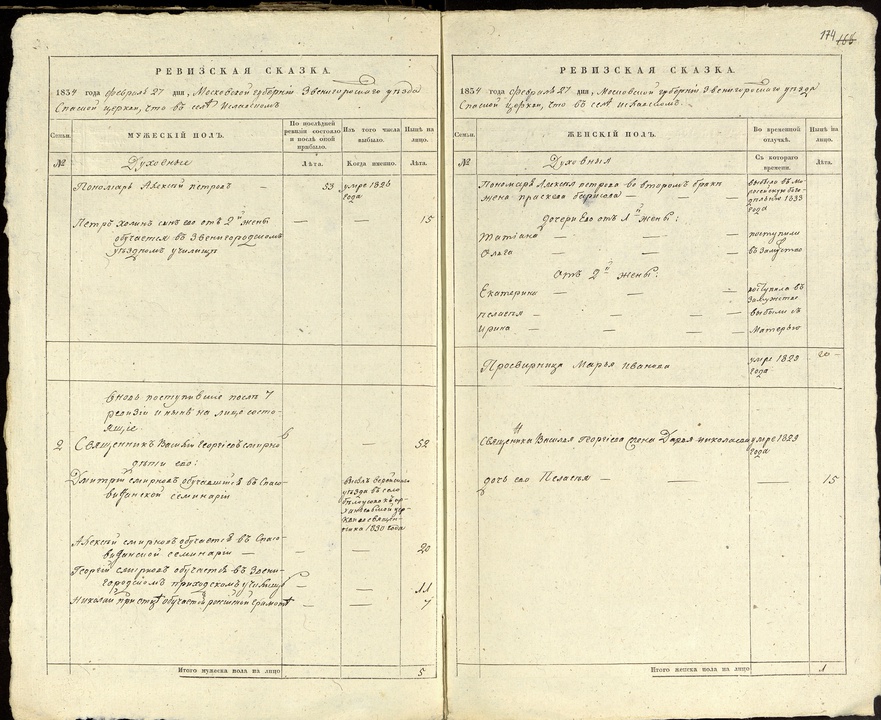 174 166
РЕВИЗСКАЯ СКАЗКА.
1834 года февраля 27 дня, Московской губернии Звенигородского уезда
Спаской церкви, что въ селе
Семьи.
МУЖЕСКІЙ ПОЛЪ.
По последней ревизіи состояло и после оной прибыло.
Изъ того числа выбыло.
Ныне на лицо.
№
Духовные
Лѣта.
Когда именно.
Лѣта.
Пономарь Алексей Петровъ — 53 умре 1826
года
Петръ холинъ сынъ его отъ 2й жены — — 15
обучается въ Звенигородскомъ
уездномъ училище
вновь поступившие после 7
ревизіи и ныне на лицо состо-
ящіе.
2 Священникъ Василій Георгіевъ Смирновъ — 52
дети его:
Дмитрій Смирновъ обучавшійся въ Спасо-
вифанской семинаріи
выбылъ
уезда въ село
священ-
ника 1830 года
Алексей Смирновъ обучается въ Спасо-
вифанской семинаріи — — — 20
Георгій Смирновъ обучается въ Звени-
городскомъ приходскомъ училище — — 11
Николай при отце обучается россійской грамоте — — 7
Итого мужеска пола на лицо 5
РЕВИЗСКАЯ СКАЗКА.
1834 года февраля 27 дня, Московской губерніи Звенигородского уезда
Спаской церкви, что въ селе
Семьи.
ЖЕНСКІЙ ПОЛЪ.
Во временной отлучке.
Ныне на лицо.
№
Духовныя
Съ котораго времени.
Лѣта.
Пономаря Алексея Петрова во второмъ браке
жена Прасковья Борисова — — —
1833
года
дочери Его отъ 1й жены:
Татіана — — поступили
Ольга — — въ замужство
Отъ 2й жены:
Екатерина — — — поступила въ
замужство
Пелагея — — — выбыли съ
Ирина — — — Матерью
Просвирница Марья Иванова умре 1829
года
20 —
Священника Василья Георгіева жена Дарья Николаева умре 1829
года
дочь его Пелагея — — — 15
Итого женска пола на лицо 1